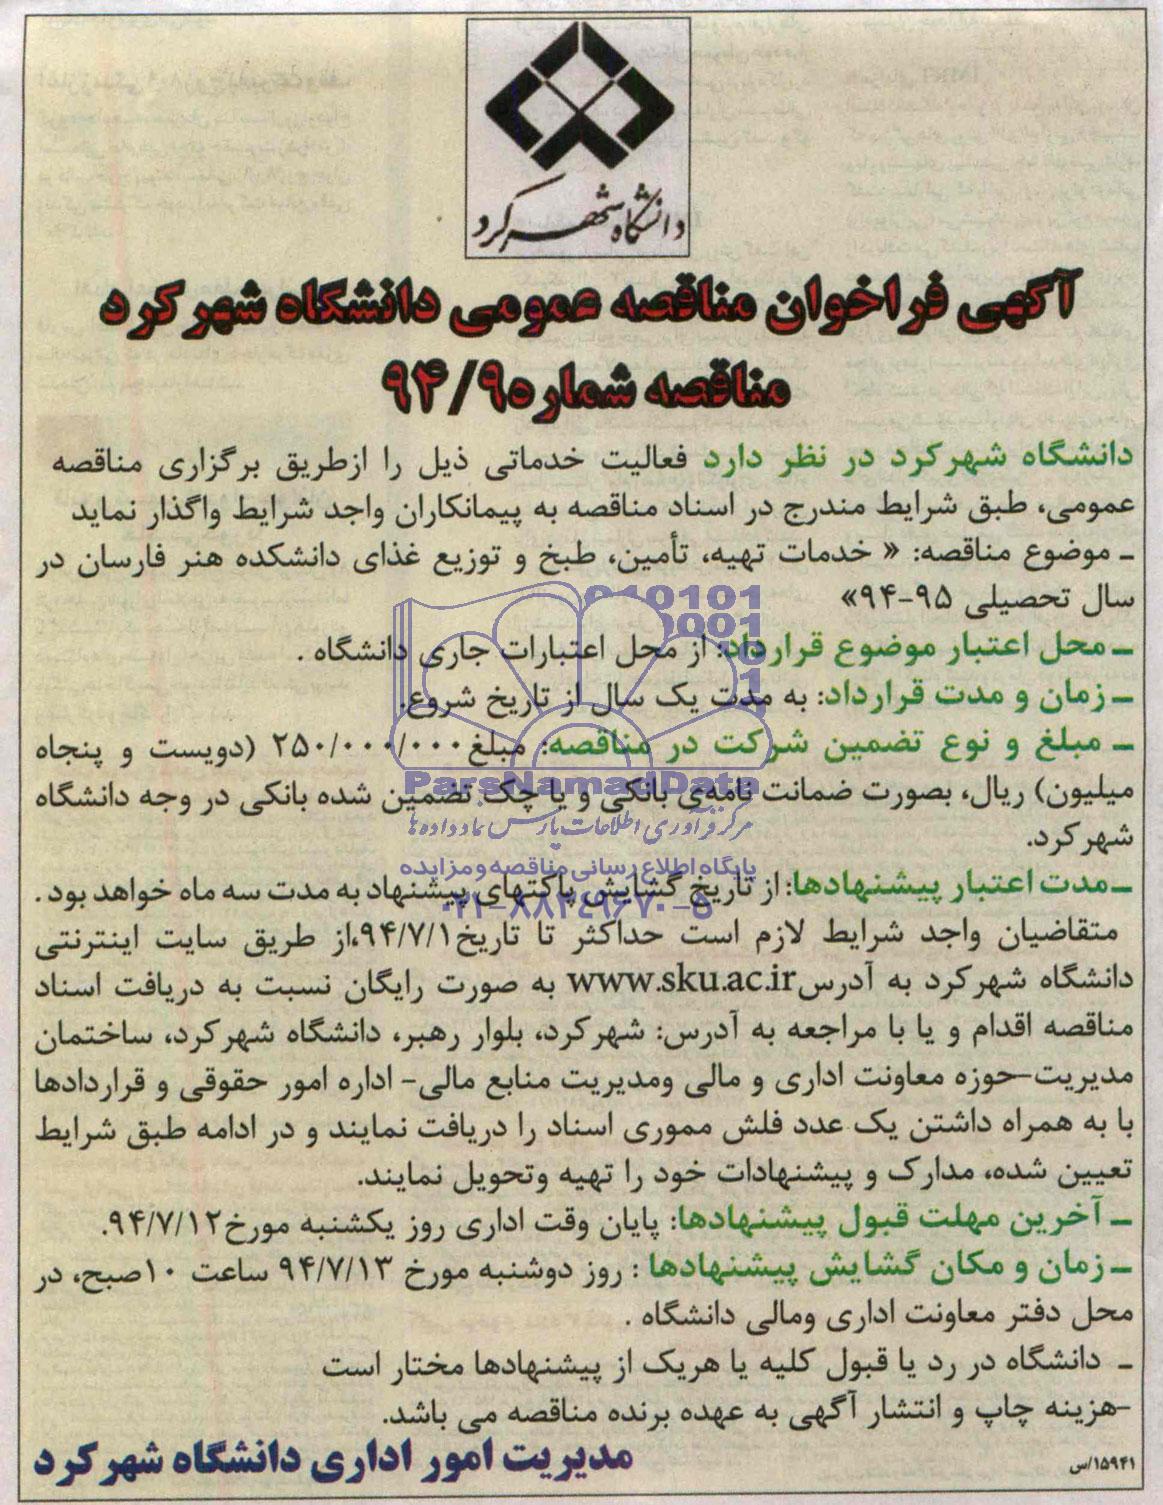 دانشگاه شهرکرد
آگهی فراخوان مناقصه عمومی دانشگاه شهرکرد
مناقصه شماره ۹۴/۹
دانشگاه شهرکرد در نظر دارد فعالیت خدماتی ذیل را ازطریق برگزاری مناقصه
عمومی، طبق شرایط مندرج در اسناد مناقصه به پیمانکاران واجد شرایط واگذار نماید
ـ موضوع مناقصه: « خدمات تهیه، تأمین، طبخ و توزیع غذای دانشکده هنر فارسان در
سال تحصیلی ۹۵-۹۴»
ـ محل اعتبار موضوع قرارداد: از محل اعتبارات جاری دانشگاه .
ـ زمان و مدت قرارداد: به مدت یک سال از تاریخ شروع.
ـ مبلغ و نوع تضمین شرکت در مناقصه: مبلغ ۲۵۰/۰۰۰/۰۰۰ (دویست و پنجاه
میلیون) ریال، بصورت ضمانت نامه‌ی بانکی و یا چک تضمین شده بانکی در وجه دانشگاه
شهرکرد.
ـ مدت اعتبار پیشنهادها: از تاریخ گشایش پاکتهای پیشنهاد به مدت سه ماه خواهد بود .
متقاضیان واجد شرایط لازم است حداکثر تا تاریخ ۹۴/۷/۱،از طریق سایت اینترنتی
دانشگاه شهرکرد به آدرس www.sku.ac.ir به صورت رایگان نسبت به دریافت اسناد
مناقصه اقدام و یا با مراجعه به آدرس: شهرکرد، بلوار رهبر، دانشگاه شهرکرد، ساختمان
مدیریت-حوزه معاونت اداری و مالی ومدیریت منابع مالی- اداره امور حقوقی و قراردادها
با به همراه داشتن یک عدد فلش مموری اسناد را دریافت نمایند و در ادامه طبق شرایط
تعیین شده، مدارک و پیشنهادات خود را تهیه وتحویل نمایند.
ـ آخرین مهلت قبول پیشنهادها: پایان وقت اداری روز یکشنبه مورخ ۹۴/۷/۱۲.
ـ زمان و مکان گشایش پیشنهادها : روز دوشنبه مورخ ۹۴/۷/۱۳ ساعت ۱۰صبح، در
محل دفتر معاونت اداری ومالی دانشگاه .
ـ دانشگاه در رد یا قبول کلیه یا هریک از پیشنهادها مختار است
-هزینه چاپ و انتشار آگهی به عهده برنده مناقصه می باشد.
مدیریت امور اداری دانشگاه شهرکرد
۱۵۹۴۱/س
ParsNamadData
مرکز فرآوری اطلاعات پارس نماد داده ها
پایگاه اطلاع رسانی مناقصه و مزایده
۰۲۱-۸۸۳۴۹۶۷۰-۵